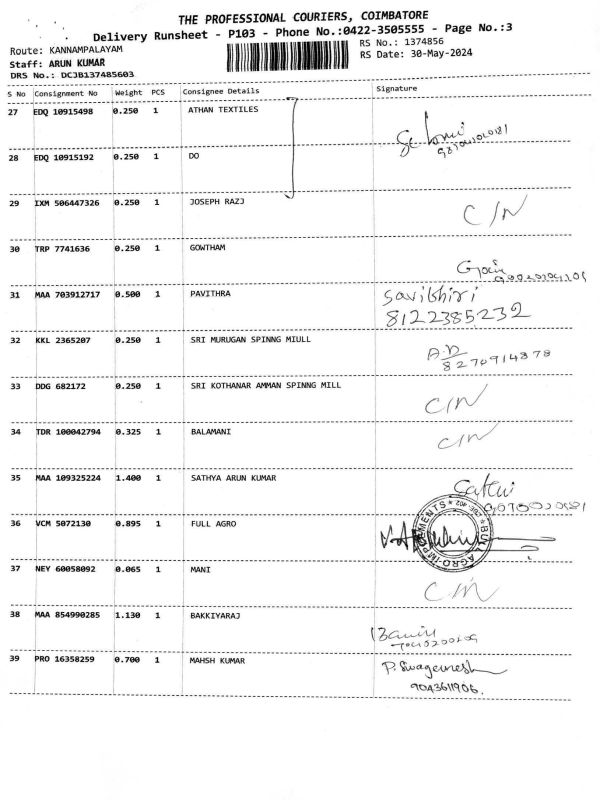 THE PROFESSIONAL COURIERS, COIMBATORE
Delivery Runsheet - P103 - Phone No.:0422-3505555 - Page No.:3
Route: KANNAMPALAYAM
RS No.: 1374856
Staff: ARUN KUMAR
RS Date: 30-May-2024
DRS No.: DCJB137485603
S No Consignment No Weight PCS Consignee Details Signature
27 EDQ 10915498 0.250 1 ATHAN TEXTILES
28 EDQ 10915192 0.250 1 DO
29 IXM 506447326 0.250 1 JOSEPH RAZJ C/N
30 TRP 7741636 0.250 1 GOWTHAM
31 MAA 703912717 0.500 1 PAVITHRA
8122385232
32 KKL 2365207 0.250 1 SRI MURUGAN SPINNG MIULL
8270914878
33 DDG 682172 0.250 1 SRI KOTHANAR AMMAN SPINNG MILL C/N
34 TDR 100042794 0.325 1 BALAMANI C/N
35 MAA 109325224 1.400 1 SATHYA ARUN KUMAR
36 VCM 5072130 0.895 1 FULL AGRO
BULL AGRO IMPLEMENTS
37 NEY 60058092 0.065 1 MANI C/N
38 MAA 854990285 1.130 1 BAKKIYARAJ
39 PRO 16358259 0.700 1 MAHSH KUMAR
9043611906.